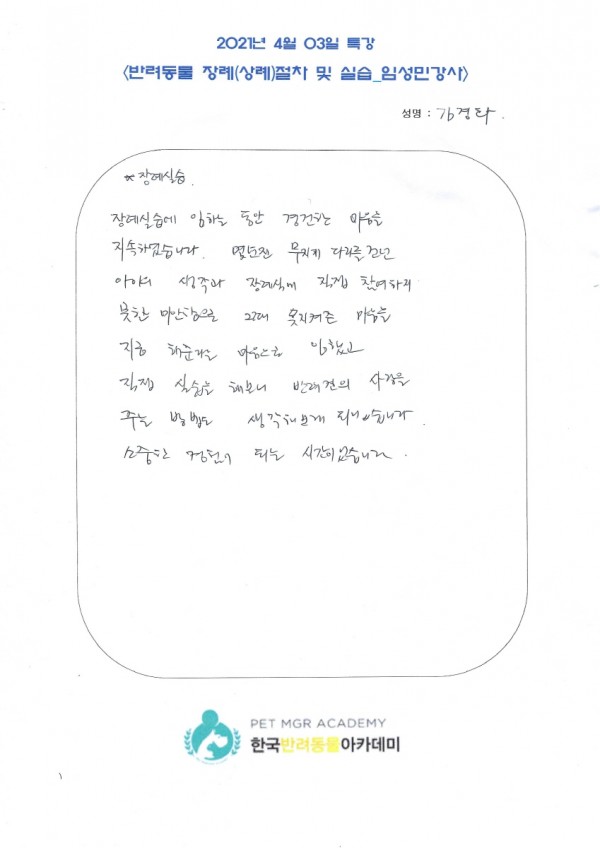 2021년 4월 03일 특강
<반려동물 장례(상례)절차 및 실습_임성민강사>
성명 :
*장례실습.
장례실습에 임하는 동안 경건한 마음을
지속하였습니다. 몇년전 무지개 다리를 건넌
아이의 생각과 장례식에 직접 참여하지
못한 미안함으로 그때 못지켜준 마음을
지금 해준다는 마음으로 임했고
직접 실습을 해보니 반려견의 사랑을
주는 방법도 생각해보게 되었습니다.
소중한 경험이 되는 시간이었습니다.
PET MGR ACADEMY
한국반려동물아카데미